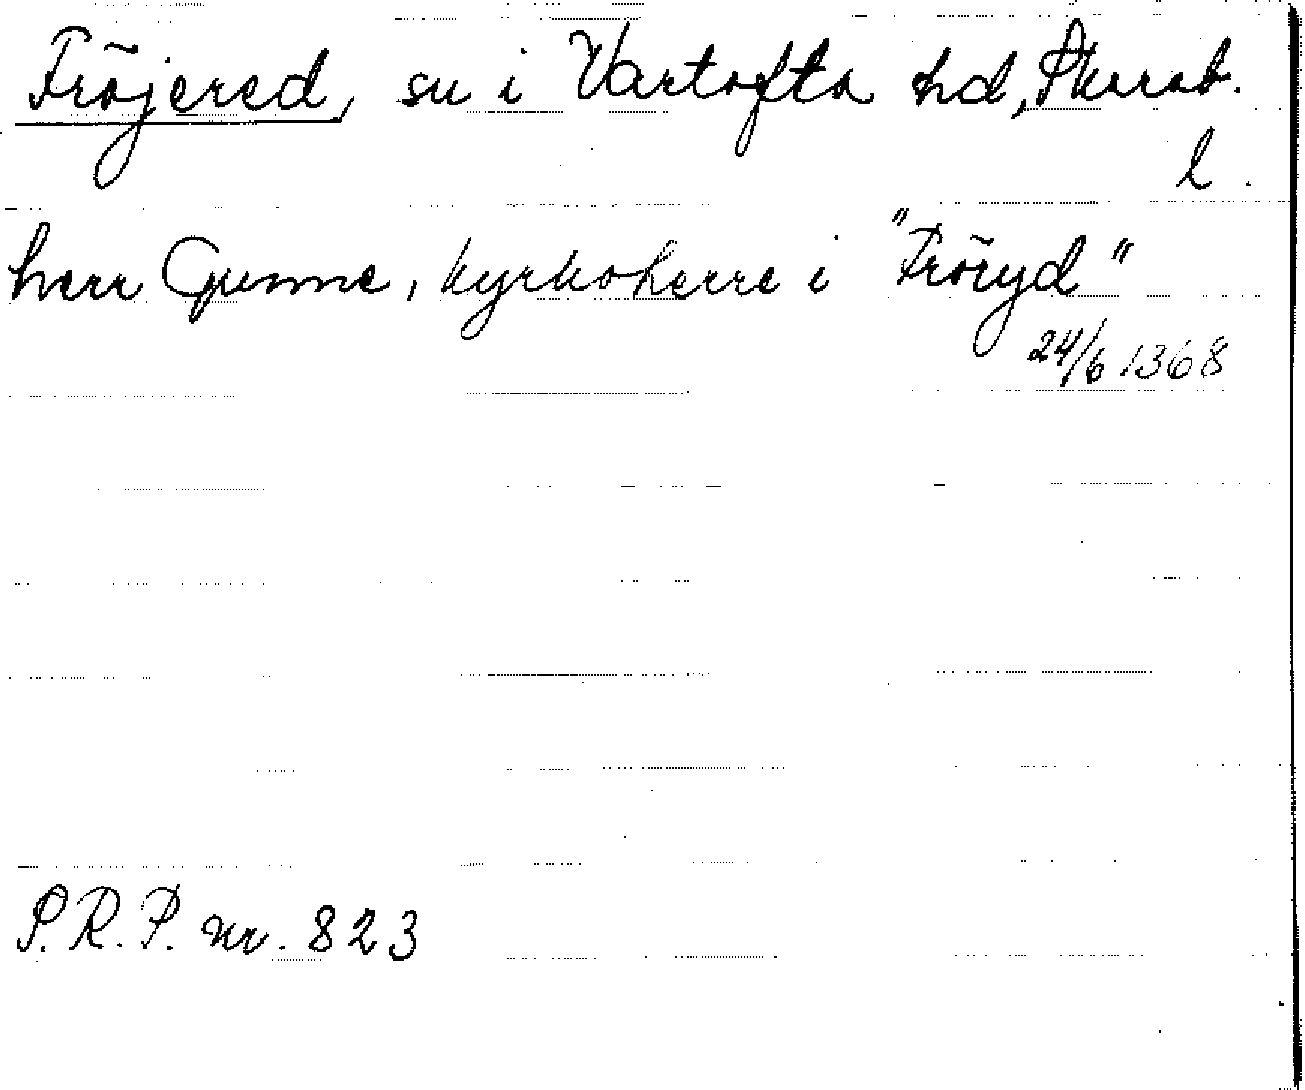 Fröjered, sn i Vartofta hd, Skarab.
l.
herr Gunne, kyrkoherre i "Fröryd"
24/6 1368
S.R.P. nr. 823